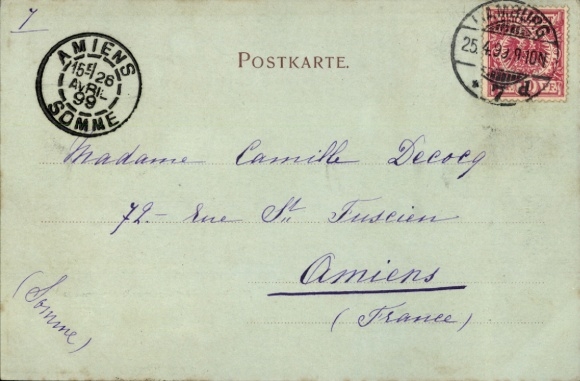 7
AMIENS
15E/26
AVRIL
99
SOMME
POSTKARTE.
HAMBURG
25.4.99.9-10N
* 7 d
Madame Camille Decocq
72 - Rue St Fuscien
Amiens
(France)
(Somme)